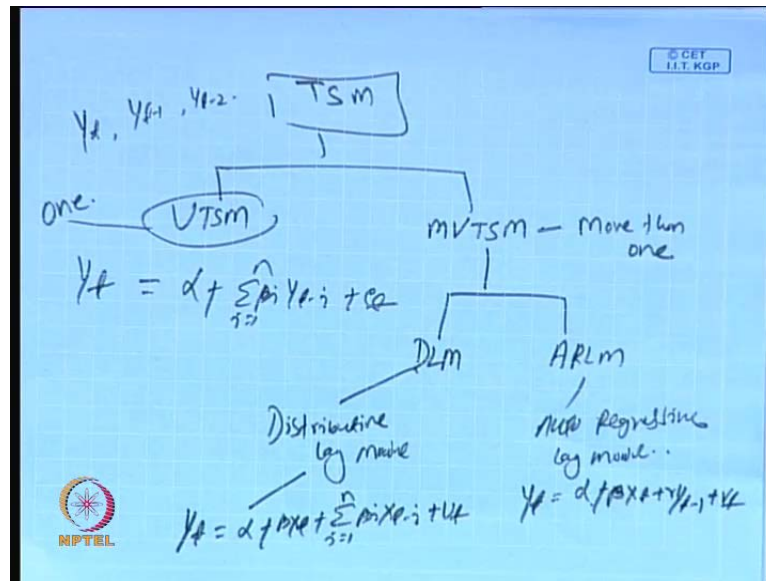 © CET
I.I.T. KGP
TSM
Yt, Yt-1, Yt-2.
one.
UTSM
MVTSM - More than
one
Yt = α + Σ βi Yt-i + et
n
i=1
DLM
ARLM
Distributive
lag model
Auto Regressive
lag model..
Yt = α + βXt + Σ βi Xt-i + Ut
n
i=1
Yt = α + βXt + γYt-1 + Vt
NPTEL